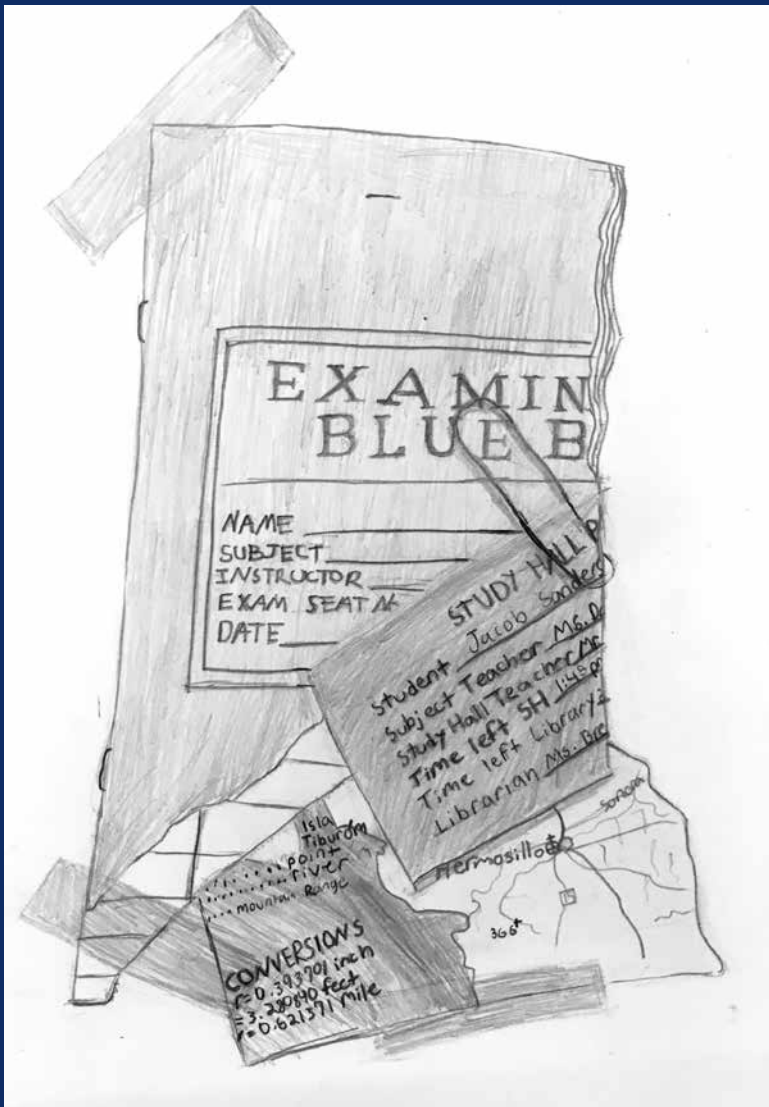 EXAMIN
BLUE B
NAME
SUBJECT
INSTRUCTOR
EXAM SEAT N
DATE
STUDY HALL P
Student Jacob Sanders
Subject Teacher Ms. D
Study Hall Teacher Mr
Time left SH 1:45 pm
Time left Library 2
Librarian Ms. Bre
Isla
Tiburom
point
river
mountain Range
CONVERSIONS
r=0.393701 inch
=3.280840 feet
r=0.621371 Mile
Sonora
Hermosillo
366